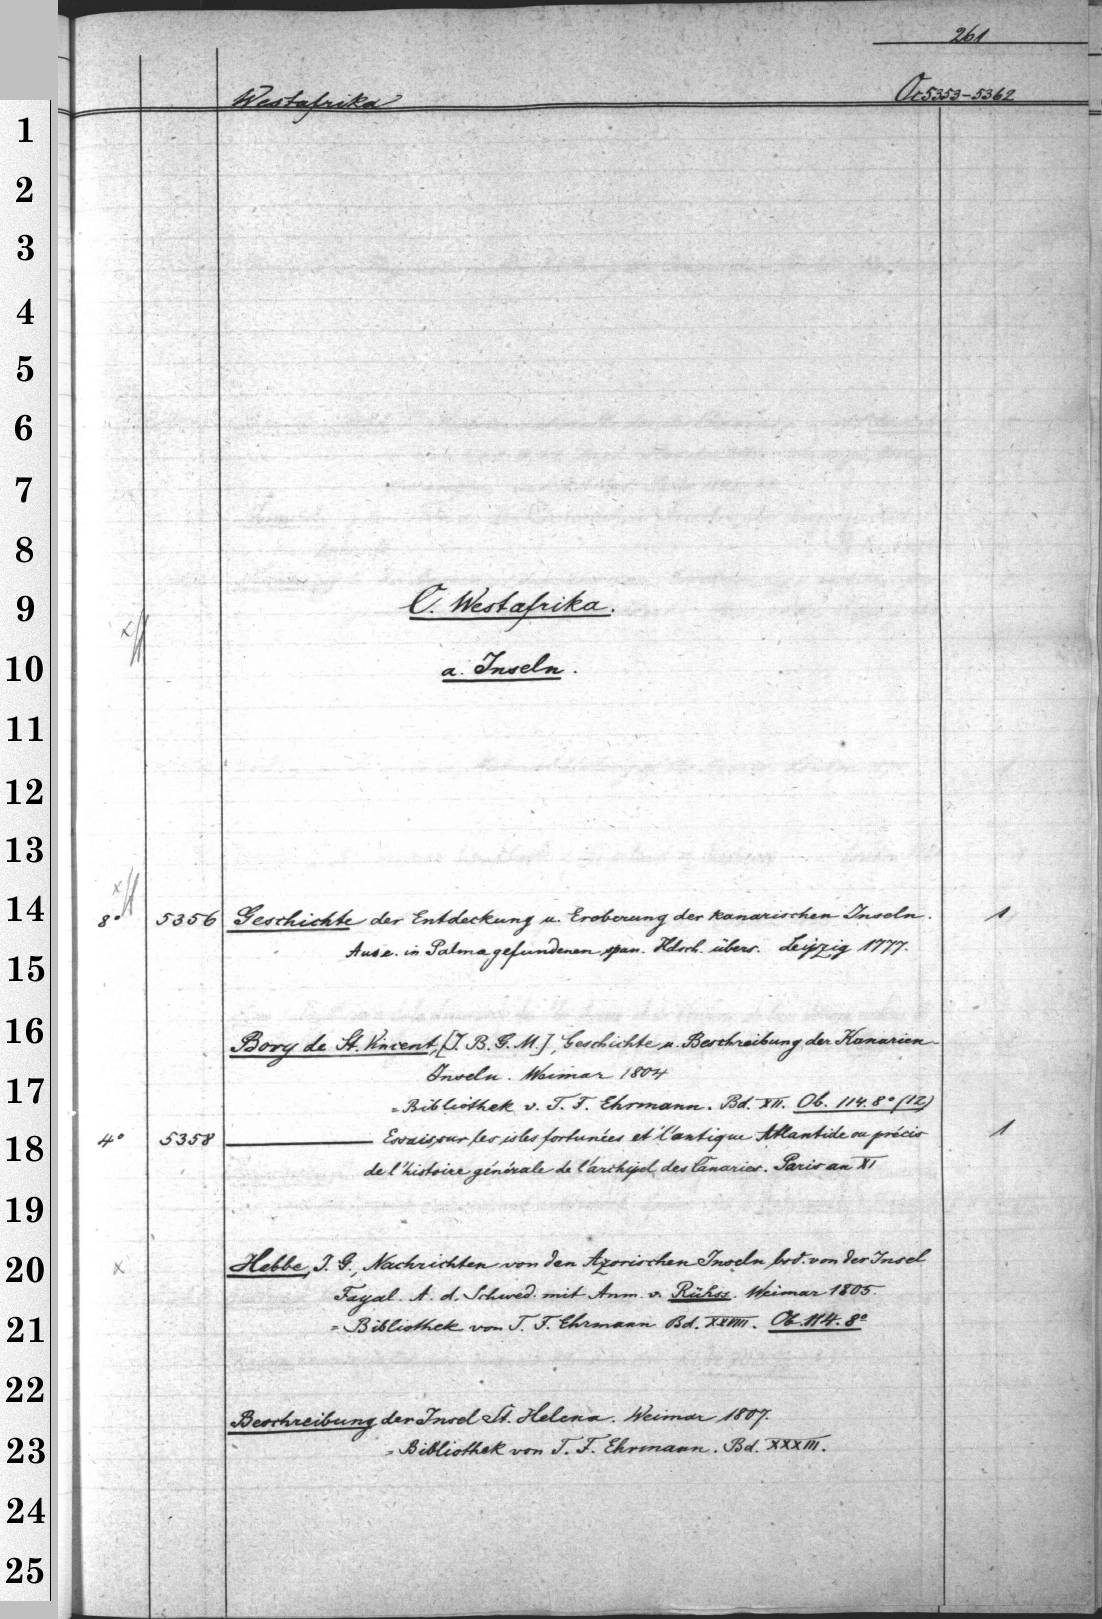 261
Westafrika Oc5353-5362
C. Westafrika.
a. Inseln.
8° 5356 Geschichte der Entdeckung u. Eroberung der kanarischen Inseln. 1
Aus e. in Palma gefundenen span. Hdsch. übers. Leipzig 1777.
Bory de St. Vincent, [J. B. G. M.], Geschichte u. Beschreibung der Kanarien-
Inseln. Weimar 1804
= Bibliothek v. T. F. Ehrmann. Bd. XII. Ob. 114. 8° (12)
4° 5358 ——— Essais sur les isles fortunées et l'antique Atlantide ou précis 1
de l'histoire générale de l'archipel des Canaries. Paris an XI
x Hebbe, J. G., Nachrichten von den Azorischen Inseln, bsd. von der Insel
Fayal. A. d. Schwed. mit Anm. v. Rühss. Weimar 1805.
= Bibliothek von T. F. Ehrmann Bd. XXVIII. Ob. 114. 8°
Beschreibung der Insel St. Helena. Weimar 1807.
= Bibliothek von T. F. Ehrmann. Bd. XXXIII.
1
2
3
4
5
6
7
8
9
10
11
12
13
14
15
16
17
18
19
20
21
22
23
24
25